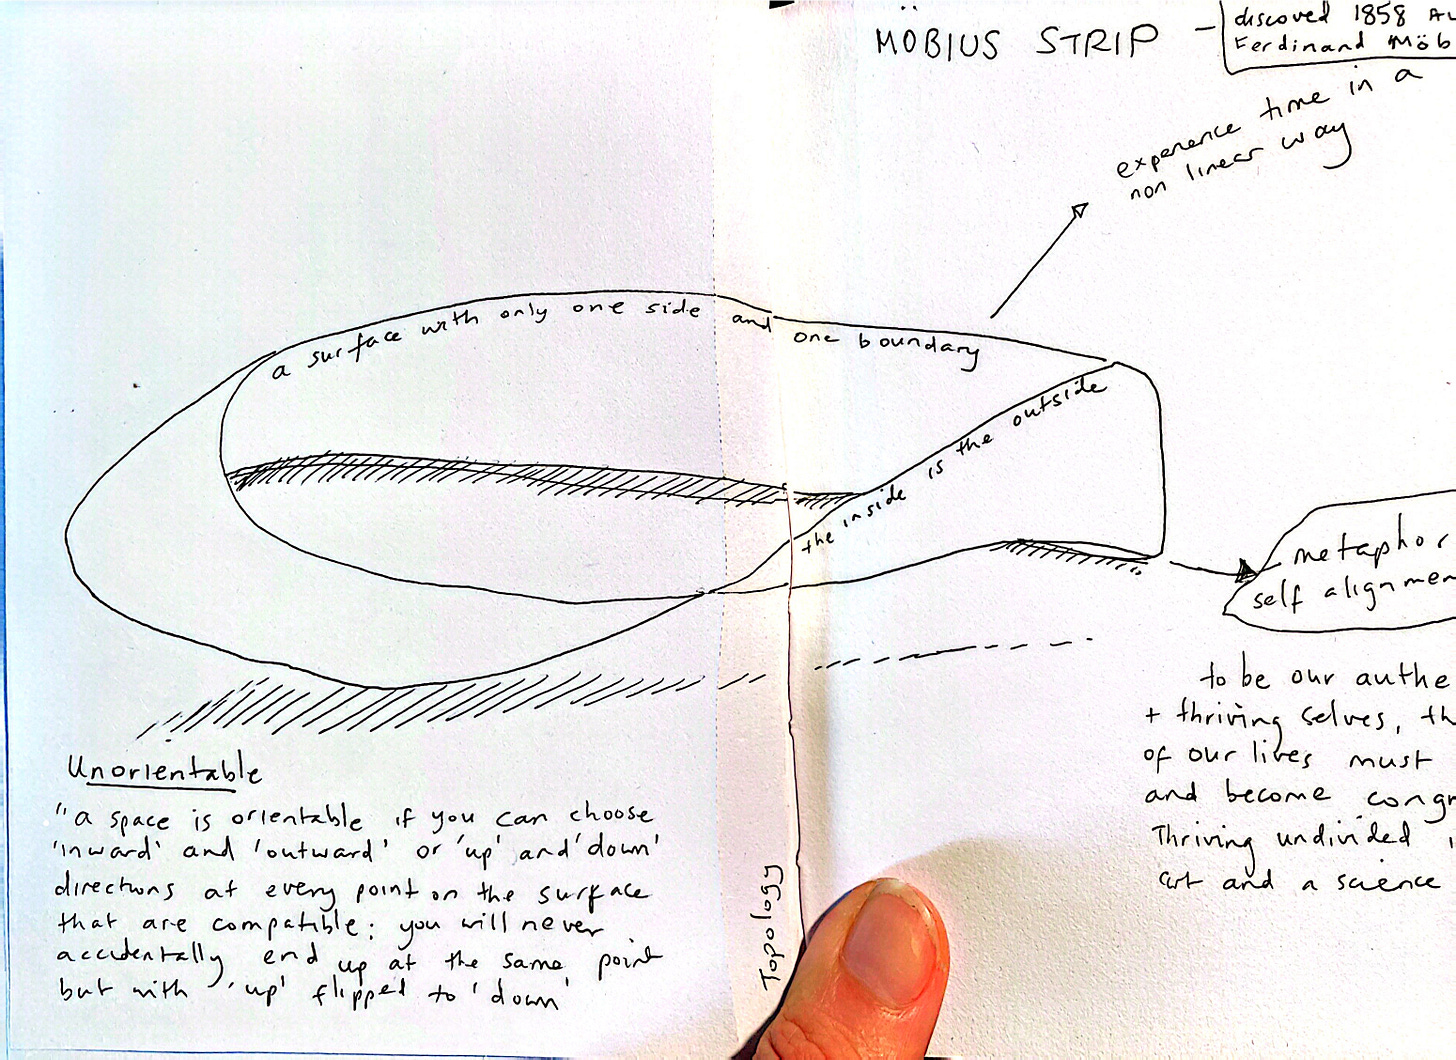 MÖBIUS STRIP –
discoved 1858 Au
Ferdinand Möb
experience time in a
non linear way
a surface with only one side and one boundary
the inside is the outside
metaphor
self alignmen
to be our authe
+ thriving selves, th
of our lives must
and become congr
Thriving undivided i
art and a science
Unorientable
"a space is orientable if you can choose
'inward' and 'outward' or 'up' and 'down'
directions at every point on the surface
that are compatible; you will never
accidentally end up at the same point
but with 'up' flipped to 'down'
Topology